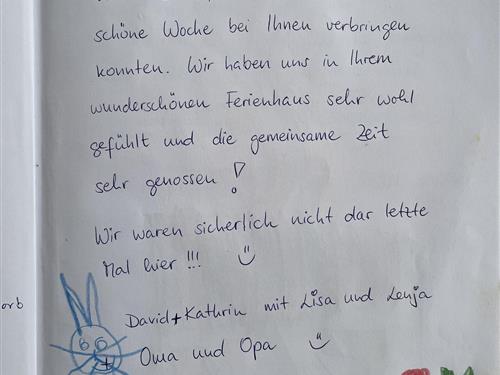 schöne Woche bei Ihnen verbringen
konnten. Wir haben uns in Ihrem
wunderschönen Ferienhaus sehr wohl
gefühlt und die gemeinsame Zeit
sehr genossen!
Wir waren sicherlich nicht dar letzte
Mal hier!!!
David+Kathrin mit Lisa und Lenja
Oma und Opa
orb